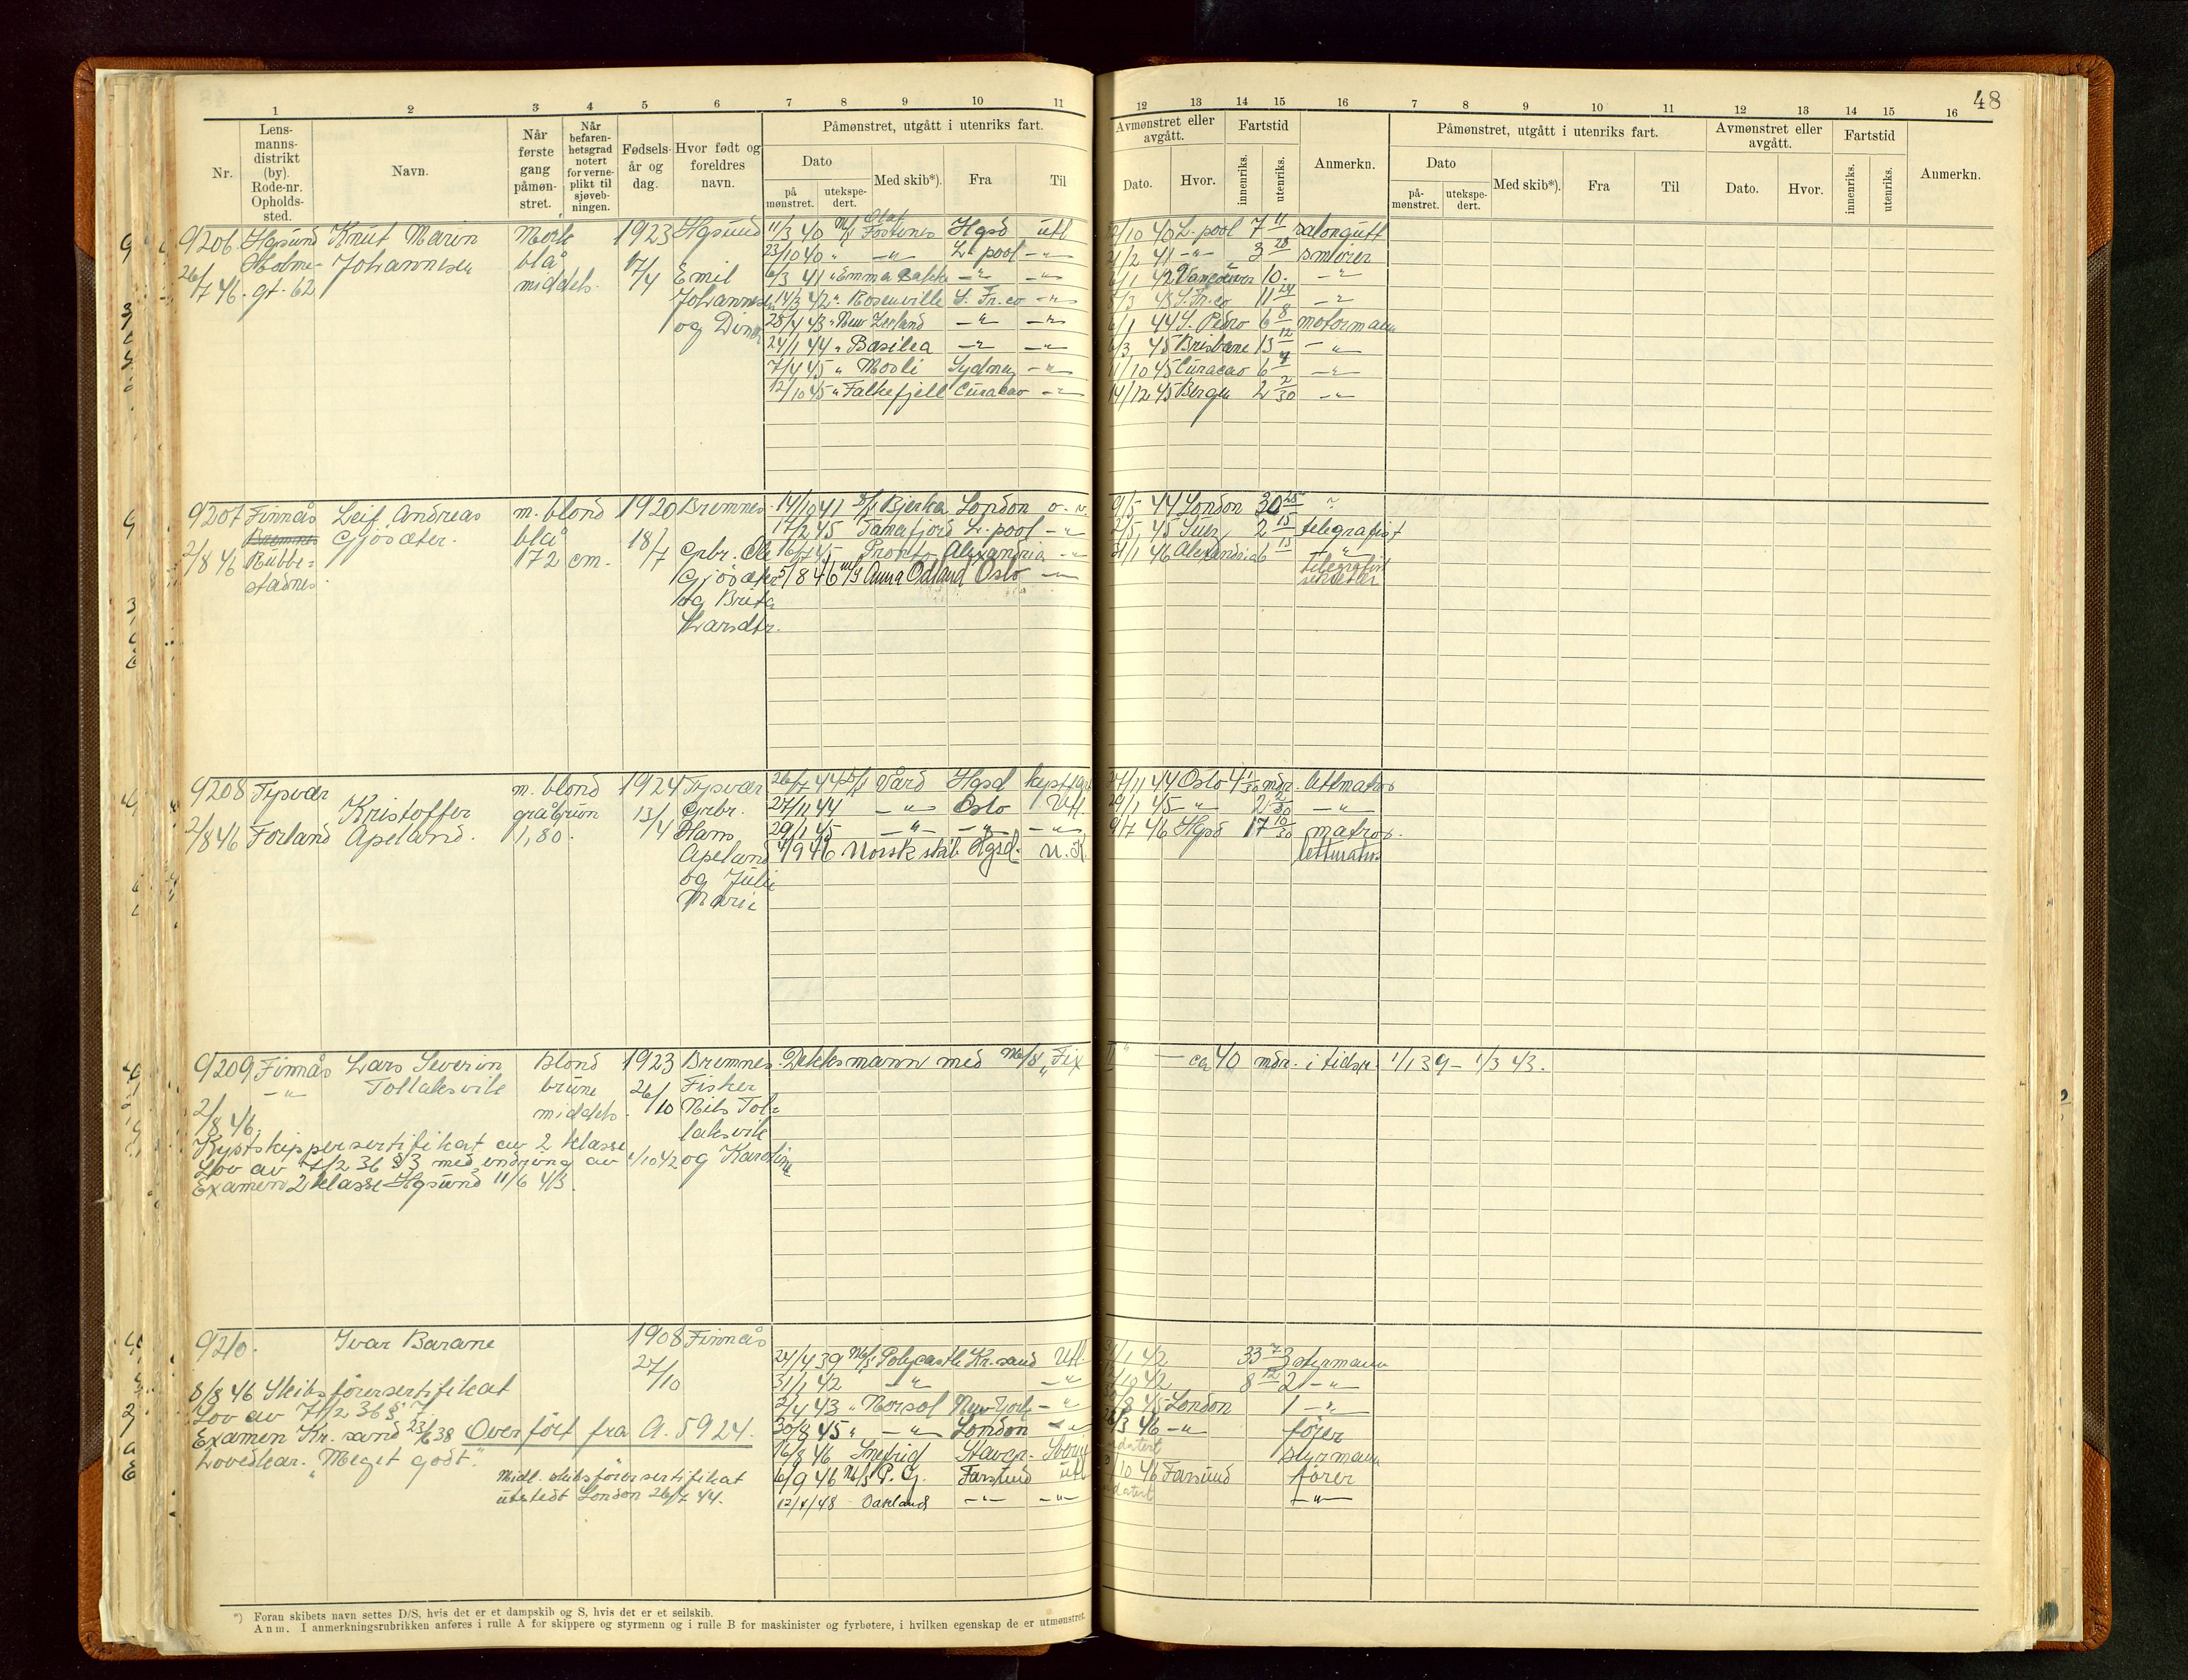 48
1 2 3 4 5 6 7 8 9 10 11 12 13 14 15 16 7 8 9 10 11 12 13 14 15 16
Nr.
Lens-
manns-
distrikt
(by).
Rode-nr.
Opholds-
sted.
Navn.
Når
første
gang
påmøn-
stret.
Når
befaren-
hetsgrad
notert
for verne-
plikt til
sjøveb-
ningen.
Fødsels-
år og
dag.
Hvor født og
foreldres
navn.
Påmønstret, utgått i utenriks fart.
Dato
på
mønstret.
utekspe-
dert.
Med skib*).
Fra
Til
Avmønstret eller
avgått.
Dato.
Hvor.
Fartstid
innenriks.
utenriks.
Anmerkn.
Påmønstret, utgått i utenriks fart.
Dato
på-
mønstret.
utekspe-
dert.
Med skib*).
Fra
Til
Avmønstret eller
avgått.
Dato.
Hvor.
Fartstid
innenriks.
utenriks.
Anmerkn.
9206 Hgsund Knut Marin Mork 1923 Hgsund
Holme- Johannesen blå 17/4 Emil
26/7 46. gt. 62 middels. Johannesen
og Dina
11/3 40 M/S Olaf Fostenes Hgsd utl 10 40 L. pool 7 11 salongutt
23/10 40 " —"— L. pool —"— /2 41 —"— 3 28 smører
6/3 41 " Emma Bakke —"— —"— /1 42 Vancouver 10. —"—
14/3 42 " Rosenville S. Fr.co —"— /3 43 S. Fr.co 11 —"—
28/4 43 " New Zealand —"— —"— /1 44 S. Pedro 6 8/12 motormann
24/1 44 " Basilea —"— —"— /3 45 Brisbane 13 —"—
7/4 45 " Mosli Sydney —"— /10 45 Curacao 6 —"—
12/10 45 " Falkefjell Curacao —"— 14/12 45 Bergen 2 2/30 —"—
9207 Finnås Leif Andreas m. blond 1920 Bremnes.
Bremnes Gjøsæter. blå 18/7 Grbr. Ole
2/8 46 Rubbe- 172 cm. Gjøsæter
stadnes. og Brita
Larsdtr.
14/10 41 D/S Bjerka London o. v. 9/5 44 London 30 25
17/2 45 Tanafjord L. pool —"— 2/5 45 Suez 2 15 telegrafist
16/7 45 Pronto Alexandria —"— /1 46 Alexandria 6 15 —"—
5/8 46 m/s Anna Odland Oslo —"— telegrafist
9208 Tysvær m. blond 1924 Tysvær
Kristoffer grågrøn 13/4 Grbr.
2/8 46 Forland Apeland. 1,80. Hans
Apeland
og Julie
Marie
26/7 44 D/S Vård Hgsd kystfart 27/11 44 Oslo 4 1/30 mdr. lettmatros
27/11 44 —"— Oslo Utl. 29/1 45 —"— 2 2/30 —"—
29/1 45 —"— —"— —"— 9/7 46 Hgsd 17 10/30 matros.
4/9 46 Norsk skib Hgsd. U. K. lettmatros
9209 Finnås Lars Severin Blond 1923 Bremnes.
—"— Tollaksvik brune 26/10 Fisker
2/8 46. middels. Nils Tol-
laksvik
og Karoline
Dekksmann med M/S „Fix" — ca 40 mdr. i tidsr. 1/1 39 – 1/3 43.
Kystskippersertifikat av 2 klasse
Lov av 7/2 36 § 3 med endring av 1/10 42
Examen 2 klasse Hgsund 11/6 43.
9210. Ivar Barane 1908 Finnås
27/10
8/8 46 Skibsførersertifikat
Lov av 7/2 36 § 7
Examen Kr. sand 23/6 38 Overført fra A. 5924.
Lovedkar. „Meget godt."
Midl. skibsførersertifikat
utstedt London 26/7 44.
24/4 39 M/S Polycastle Kr. sand Utl. /1 42 33 7 3 styrmann
31/1 42 —"— —"— /10 42 8 12 2 —"—
2/4 43 " Norsol New York —"— /8 45 London 1 —"—
30/8 45 " —"— London —"— /3 46 —"— fører
16/8 46 Snefrid Stavgr. styrmann
6/9 46 M/S P. G. Farsund utl /10 46 Farsund fører
12/4/48 Oakland —"— —"— —"—
*) Foran skibets navn settes D/S, hvis det er et dampskib og S, hvis det er et seilskib.
Anm. I anmerkningsrubrikken anføres i rulle A for skippere og styrmenn og i rulle B for maskinister og fyrbøtere, i hvilken egenskap de er utmønstret.